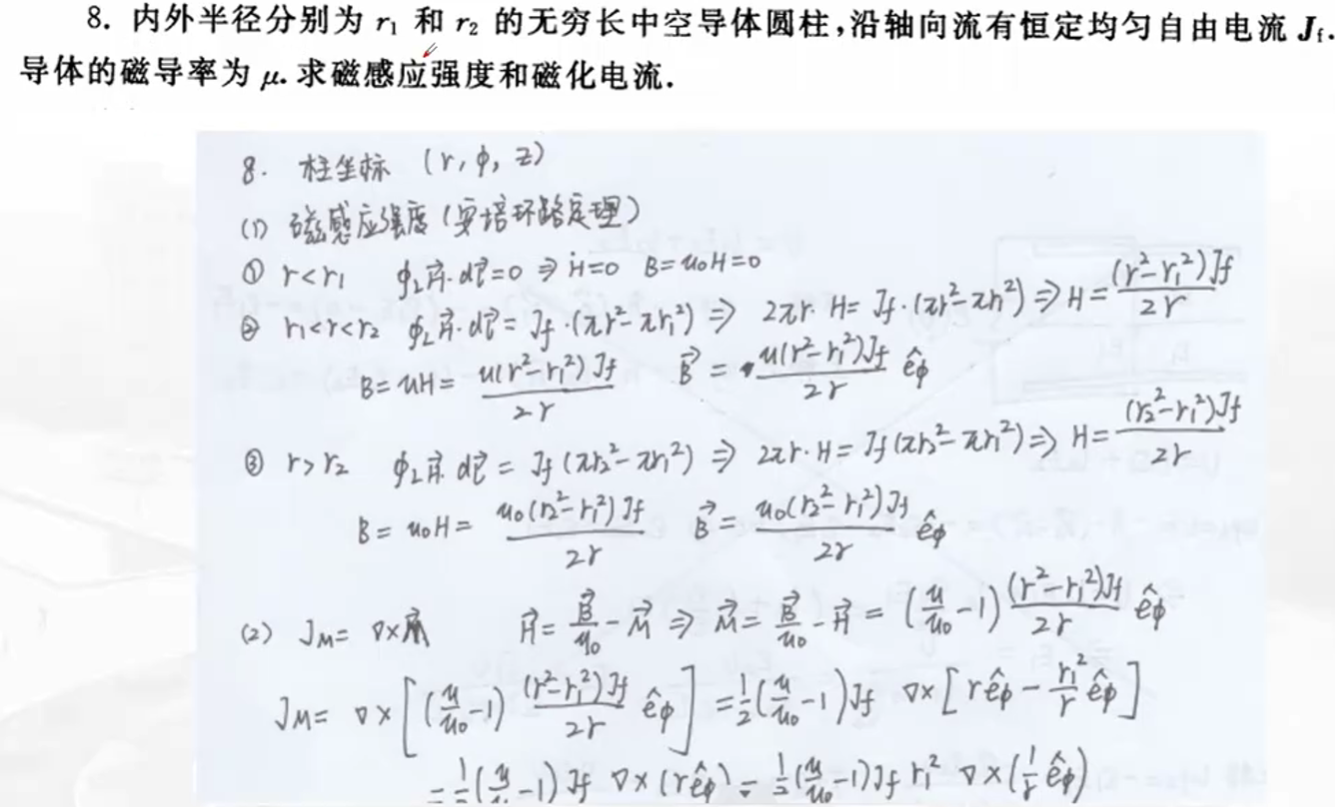 8. 内外半径分别为 r₁ 和 r₂ 的无穷长中空导体圆柱,沿轴向流有恒定均匀自由电流 J_f.
导体的磁导率为 μ. 求磁感应强度和磁化电流.
8. 柱坐标 (r, φ, z)
(1) 磁感应强度 (安培环路定理)
① r<r₁ ∮_L H⃗·dl⃗=0 ⇒ H=0 B=u₀H=0
② r₁<r<r₂ ∮_L H⃗·dl⃗ = J_f·(πr²-πr₁²) ⇒ 2πr·H = J_f·(πr²-πr₁²) ⇒ H = (r²-r₁²)J_f / 2r
B=uH= u(r²-r₁²)J_f / 2r B⃗ = u(r²-r₁²)J_f / 2r ê_φ
③ r>r₂ ∮_L H⃗·dl⃗ = J_f(πr₂²-πr₁²) ⇒ 2πr·H = J_f(πr₂²-πr₁²) ⇒ H = (r₂²-r₁²)J_f / 2r
B = u₀H = u₀(r₂²-r₁²)J_f / 2r B⃗ = u₀(r₂²-r₁²)J_f / 2r ê_φ
(2) J_M = ∇×M⃗ H⃗ = B⃗/u₀ - M⃗ ⇒ M⃗ = B⃗/u₀ - H⃗ = (u/u₀ - 1) (r²-r₁²)J_f / 2r ê_φ
J_M = ∇×[(u/u₀ - 1) (r²-r₁²)J_f / 2r ê_φ] = 1/2 (u/u₀ - 1)J_f ∇×[rê_φ - r₁²/r ê_φ]
= 1/2 (u/u₀ - 1)J_f ∇×(rê_φ) - 1/2 (u/u₀ - 1)J_f r₁² ∇×(1/r ê_φ)